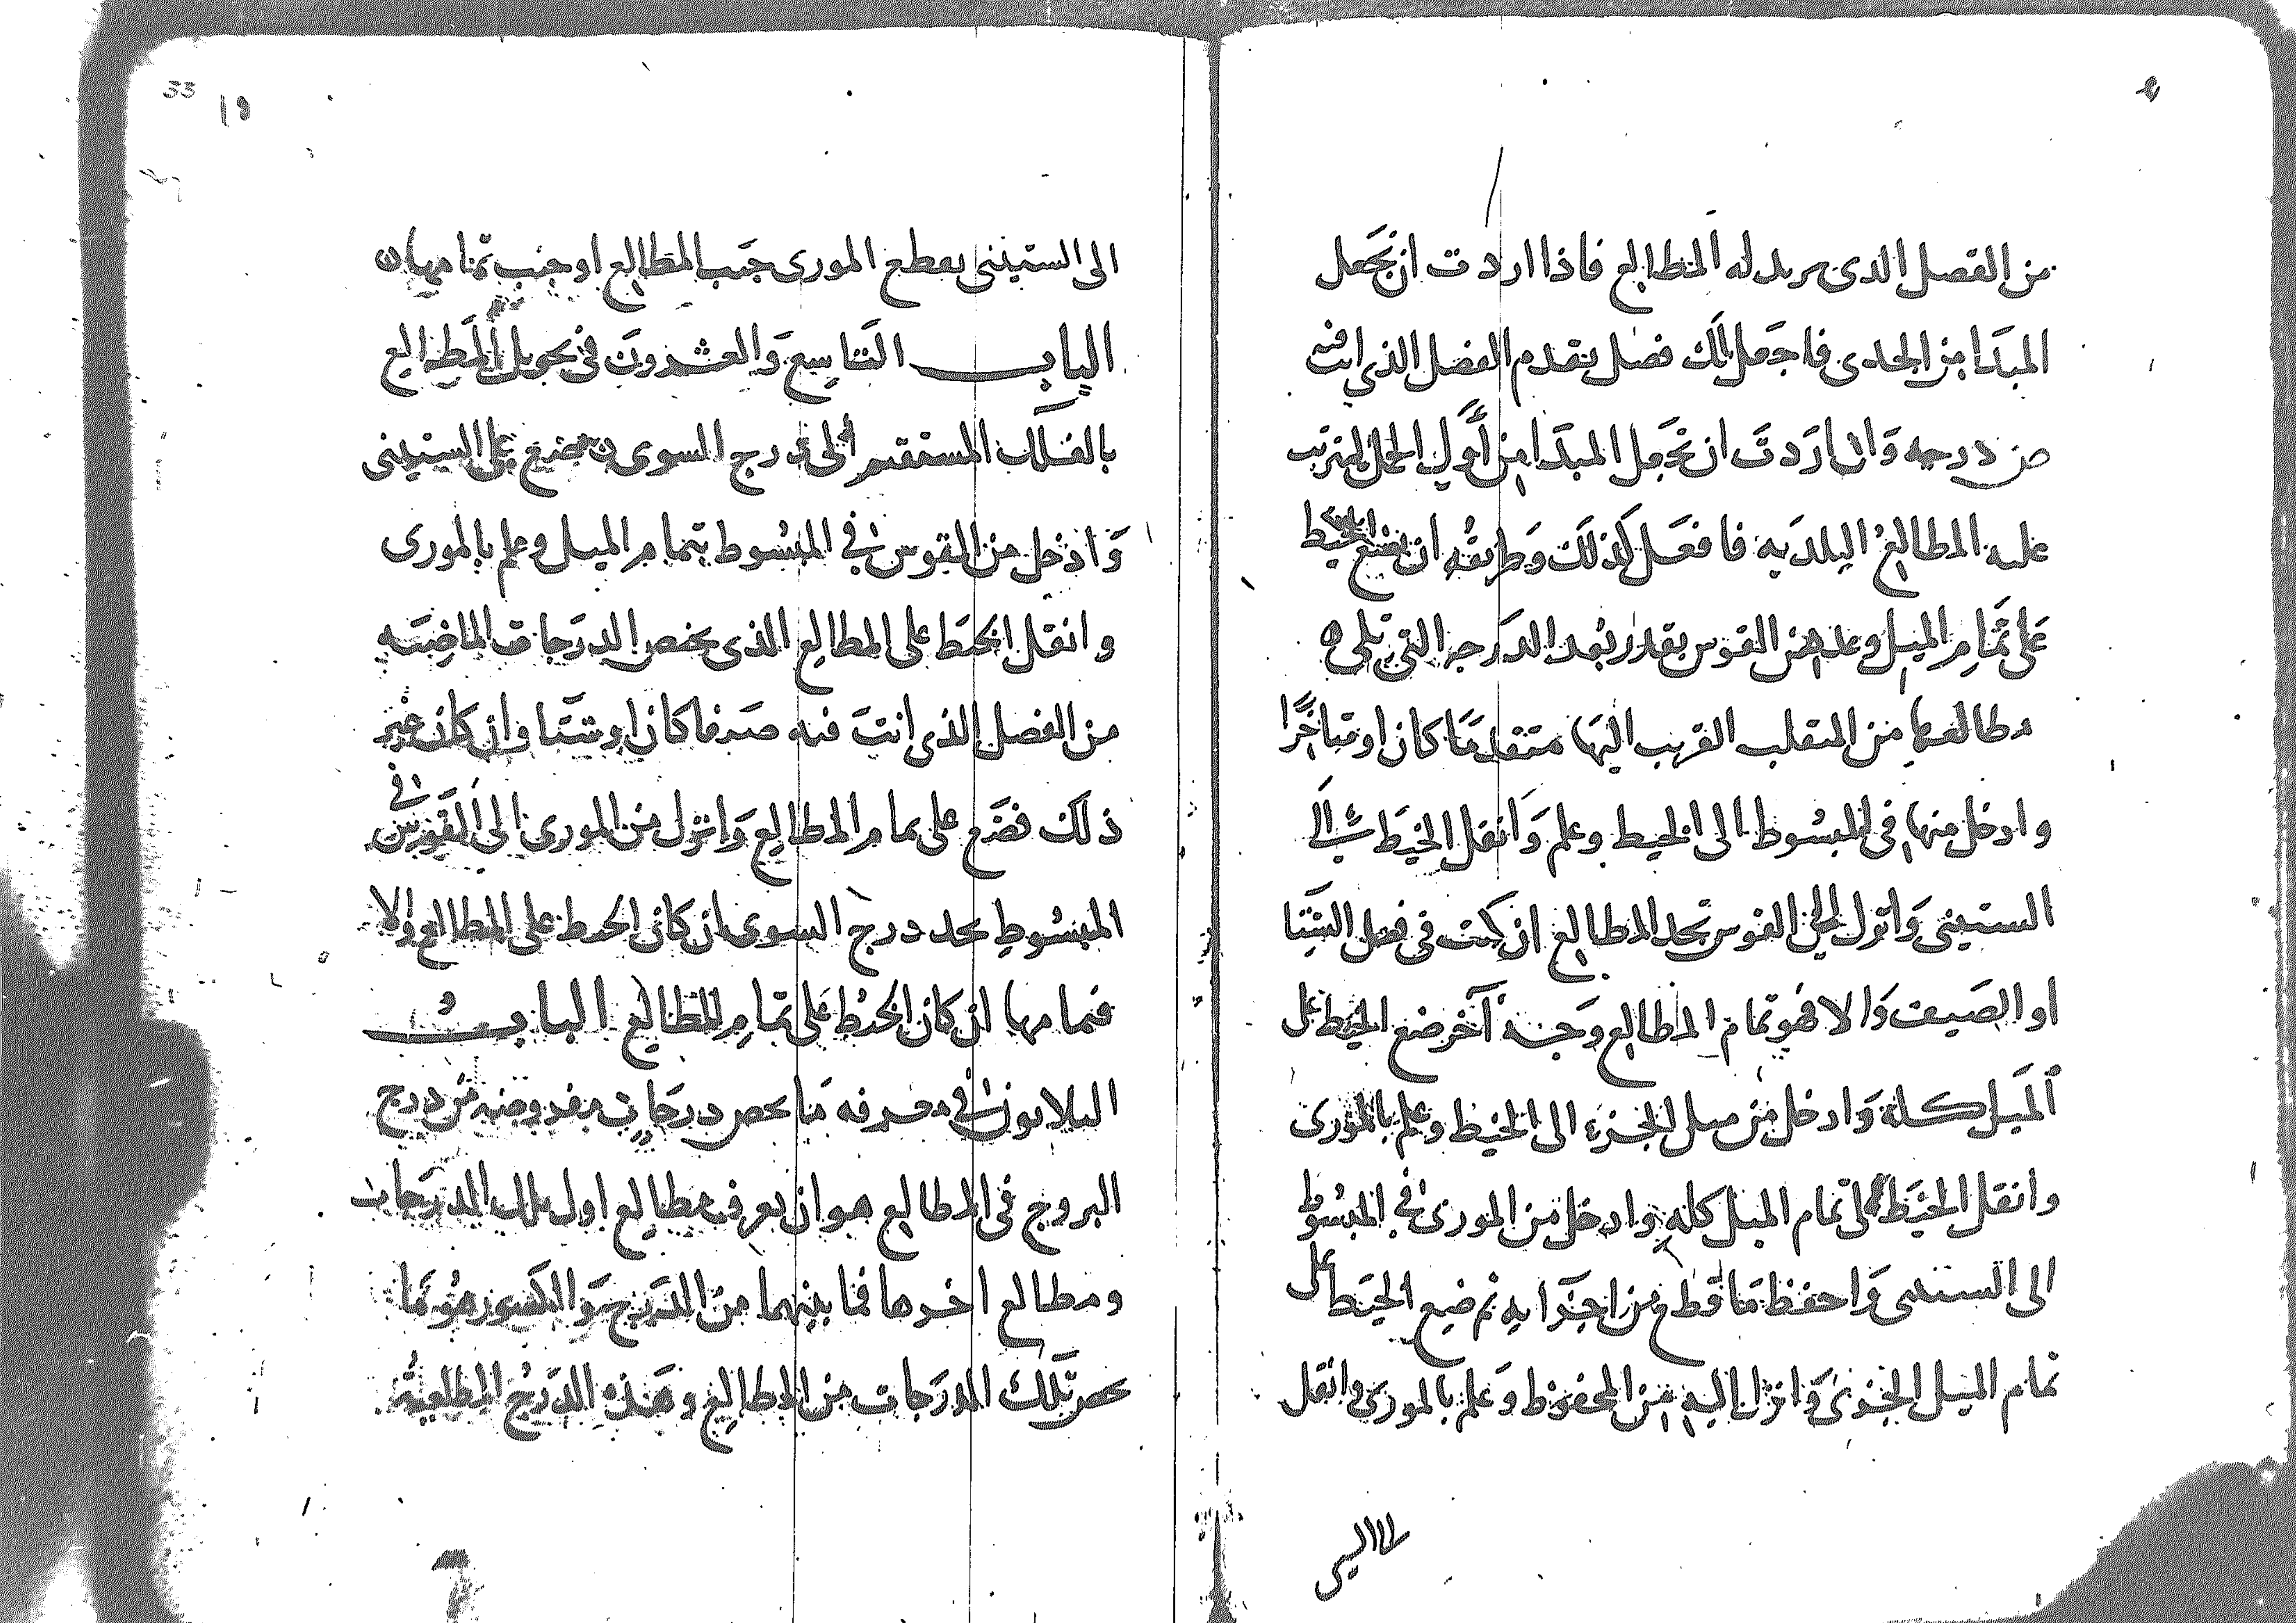 من الفصل الذى تريد له المطالع فاذا اردت ان تجعل
المبدا من الجدى فاجعل لك فصل يقدم الفصل الذى انت فيه
من درجه وان اردت ان تجعل المبدا من أول الحمل لترتب
عليه المطالع البلديه فافعل كذلك وطريقه ان تضع الخيط
على تمام الميل وعد من القوس بقدر بعد الدرجه التى تلى
مطالعها من المنقلب القريب اليها متقدمًا كان او متاخرًا
وادخل منها فى المبسوط الى الخيط وعلم وانقل الخيط الى
الستينى وانزل الى القوس تجد المطالع ان كنت فى فصل الشتا
او الصيف والا فهو تمام المطالع وجه آخر ضع الخيط على
الميل كله وادخل من ميل الجزء الى الخيط وعلم بالمورى
وانقل الخيط الى تمام الميل كله وادخل من المورى فى المبسوط
الى الستينى واحفظ ما قطع من اجزايه ثم ضع الخيط على
تمام الميل الجزوى وانزل اليه من المحفوظ وعلم بالمورى وانقل
33
19
الى الستينى يقطع المورى جيب المطالع او جيب تمامها ن
الباب التاسع والعشرون فى تحويل المطالع
بالفلك المستقيم الى درج السوى تضع على الستينى
وادخل من القوس فى المبسوط بتمام الميل وعلم بالمورى
وانقل الخيط على المطالع الذى يخص الدرجات الماضيه
من الفصل الذى انت فيه صيفا كان او شتا وان كان غير
ذلك فضع على تمام المطالع وانزل من المورى الى القوس فى
المبسوط تجد درج السوى ان كان الخيط على المطالع والا
فتمامها ان كان الخيط على تمام المطالع الباب
الثلاثون فى معرفه ما يخص درجات مفروضه من درج
البروج فى المطالع هو ان تعرف مطالع اول تلك الدرجات
ومطالع اخرها فما بينهما من الدرج والكسور هو ما
يخص تلك الدرجات من المطالع وهذه الدرج المطلعية